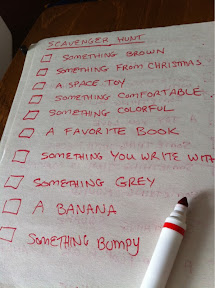 SCAVENGER HUNT
SOMETHING BROWN
SOMETHING FROM CHRISTMAS
A SPACE TOY
SOMETHING COMFORTABLE.
SOMETHING COLORFUL
A FAVORITE BOOK
SOMETHING YOU WRITE WITH
SOMETHING GREY
A BANANA
SOMETHING BUMPY